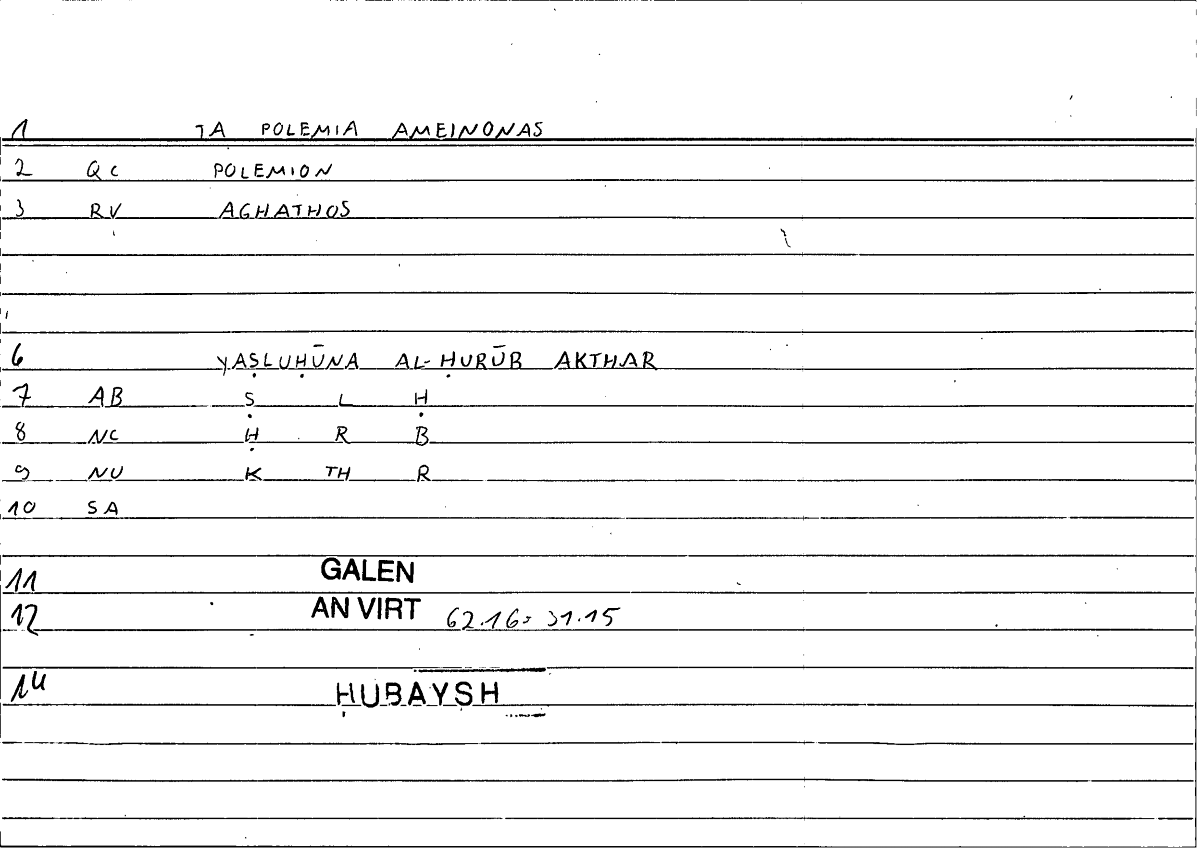 1 TA POLEMIA AMEINONAS
2 QC POLEMION
3 RV AGHATHOS
6 YAṢLUḤŪNA AL-ḤURŪB AKTHAR
7 AB Ṣ L Ḥ
8 NC Ḥ R B
9 NU K TH R
10 SA
11 GALEN
12 AN VIRT 62.16= 31.15
14 ḤUBAYSH